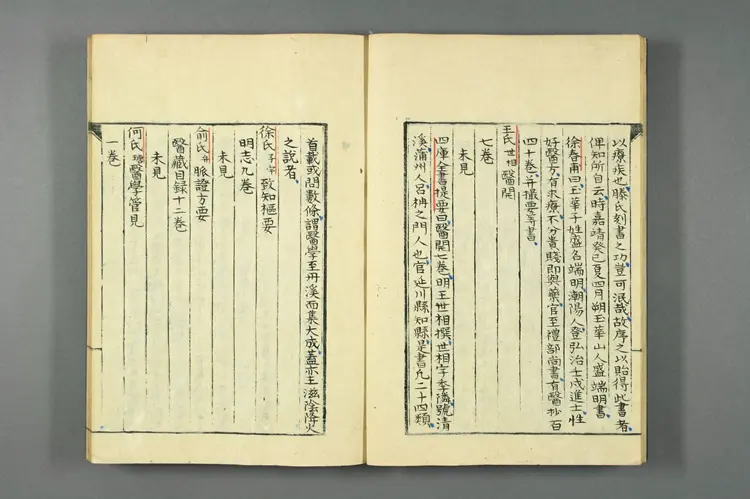 以療疾也滕氏刻書之功豈可泯哉故序之以貽得此書者
俾知所自云時嘉靖癸巳夏四月朔玉華山人盛端明書
徐春甫曰玉華子姓盛名端明潮陽人登弘治壬戌進士性
好醫方有求療不分貴賤即與藥官至禮部尚書有醫抄百
四十卷并撮要等書
王氏世相醫開
七卷
未見
四庫全書提要曰醫開七卷明王世相撰世相字季隣號清
溪蒲州人呂柟之門人也官延川縣知縣是書凡二十四類
首載或問數條謂醫學至丹溪而集大成蓋亦主滋陰降火
之說者
徐氏子宇致知樞要
明志九卷
未見
俞氏弁脈證方要
醫藏目録十二卷
未見
何氏瑭醫學管見
一卷